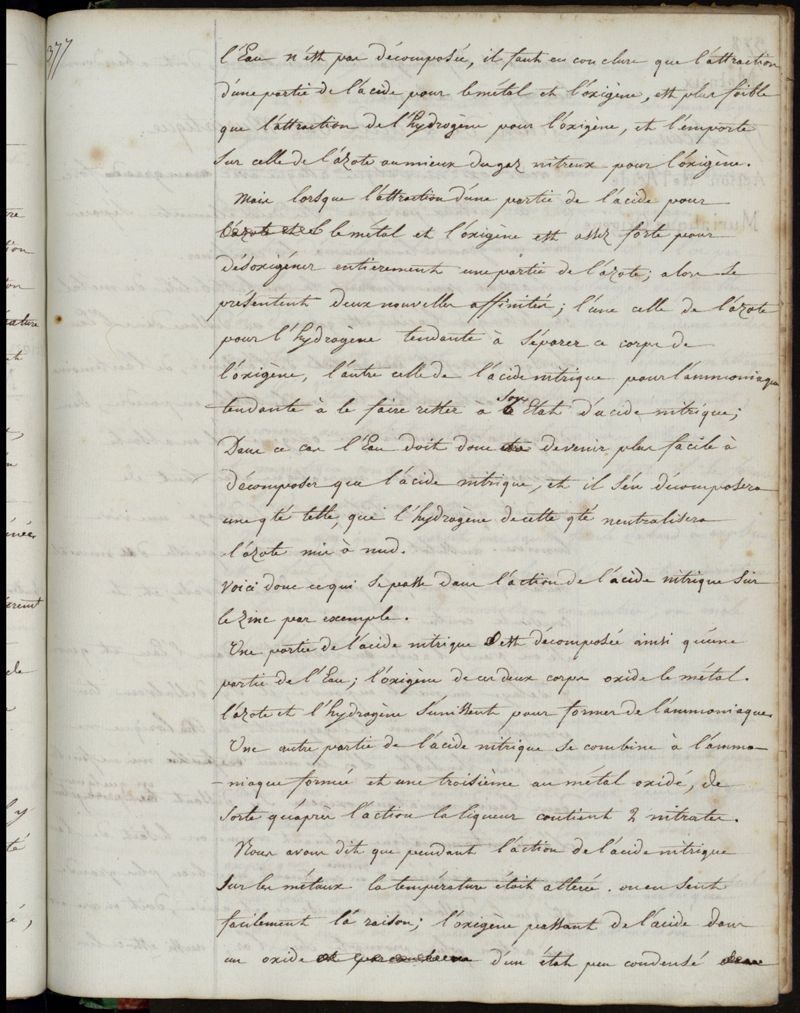 377
l'Eau n'est pas décomposée, il faut en conclure que l'attraction
d'une partie de l'acide pour le métal et l'oxigène, est plus foible
que l'attraction de l'hydrogène pour l'oxigène, et l'emporte
sur celle de l'azote au mieux du gaz nitreux pour l'oxigène.
Mais lorsque l'attraction d'une partie de l'acide pour
l'azote et l le métal et l'oxigène est assez forte pour
désoxigéner entierement une partie de l'azote; alors se
présentent deux nouvelles affinités; l'une celle de l'azote
pour l'hydrogène tendante à séparer ce corps de
l'oxigène, l'autre celle de l'acide nitrique pour l'ammoniaque
tendante à le faire rester à son Etat d'acide nitrique;
Dans ce cas l'Eau doit donc devenir plus facile à
décomposer que l'acide nitrique, et il s'en décomposera
une qté telle, que l'hydrogène de cette qté neutralisera
l'azote mis à nud.
Voici donc ce qui se passe dans l'action de l'acide nitrique sur
le zinc par exemple.
Une partie de l'acide nitrique est décomposée ainsi qu'une
partie de l'Eau; l'oxigène de ces deux corps oxide le métal.
l'azote et l'hydrogène s'unissent pour former de l'ammoniaque.
Une autre partie de l'acide nitrique se combine à l'ammo-
-niaque formée et une troisième au métal oxidé, de
sorte qu'après l'action la liqueur contient 2 nitrates.
Nous avons dit que pendant l'action de l'acide nitrique
sur les métaux la température étoit alterée. on en sent
facilement la raison; l'oxigène passant de l'acide dans
un oxide d'un état peu condensé